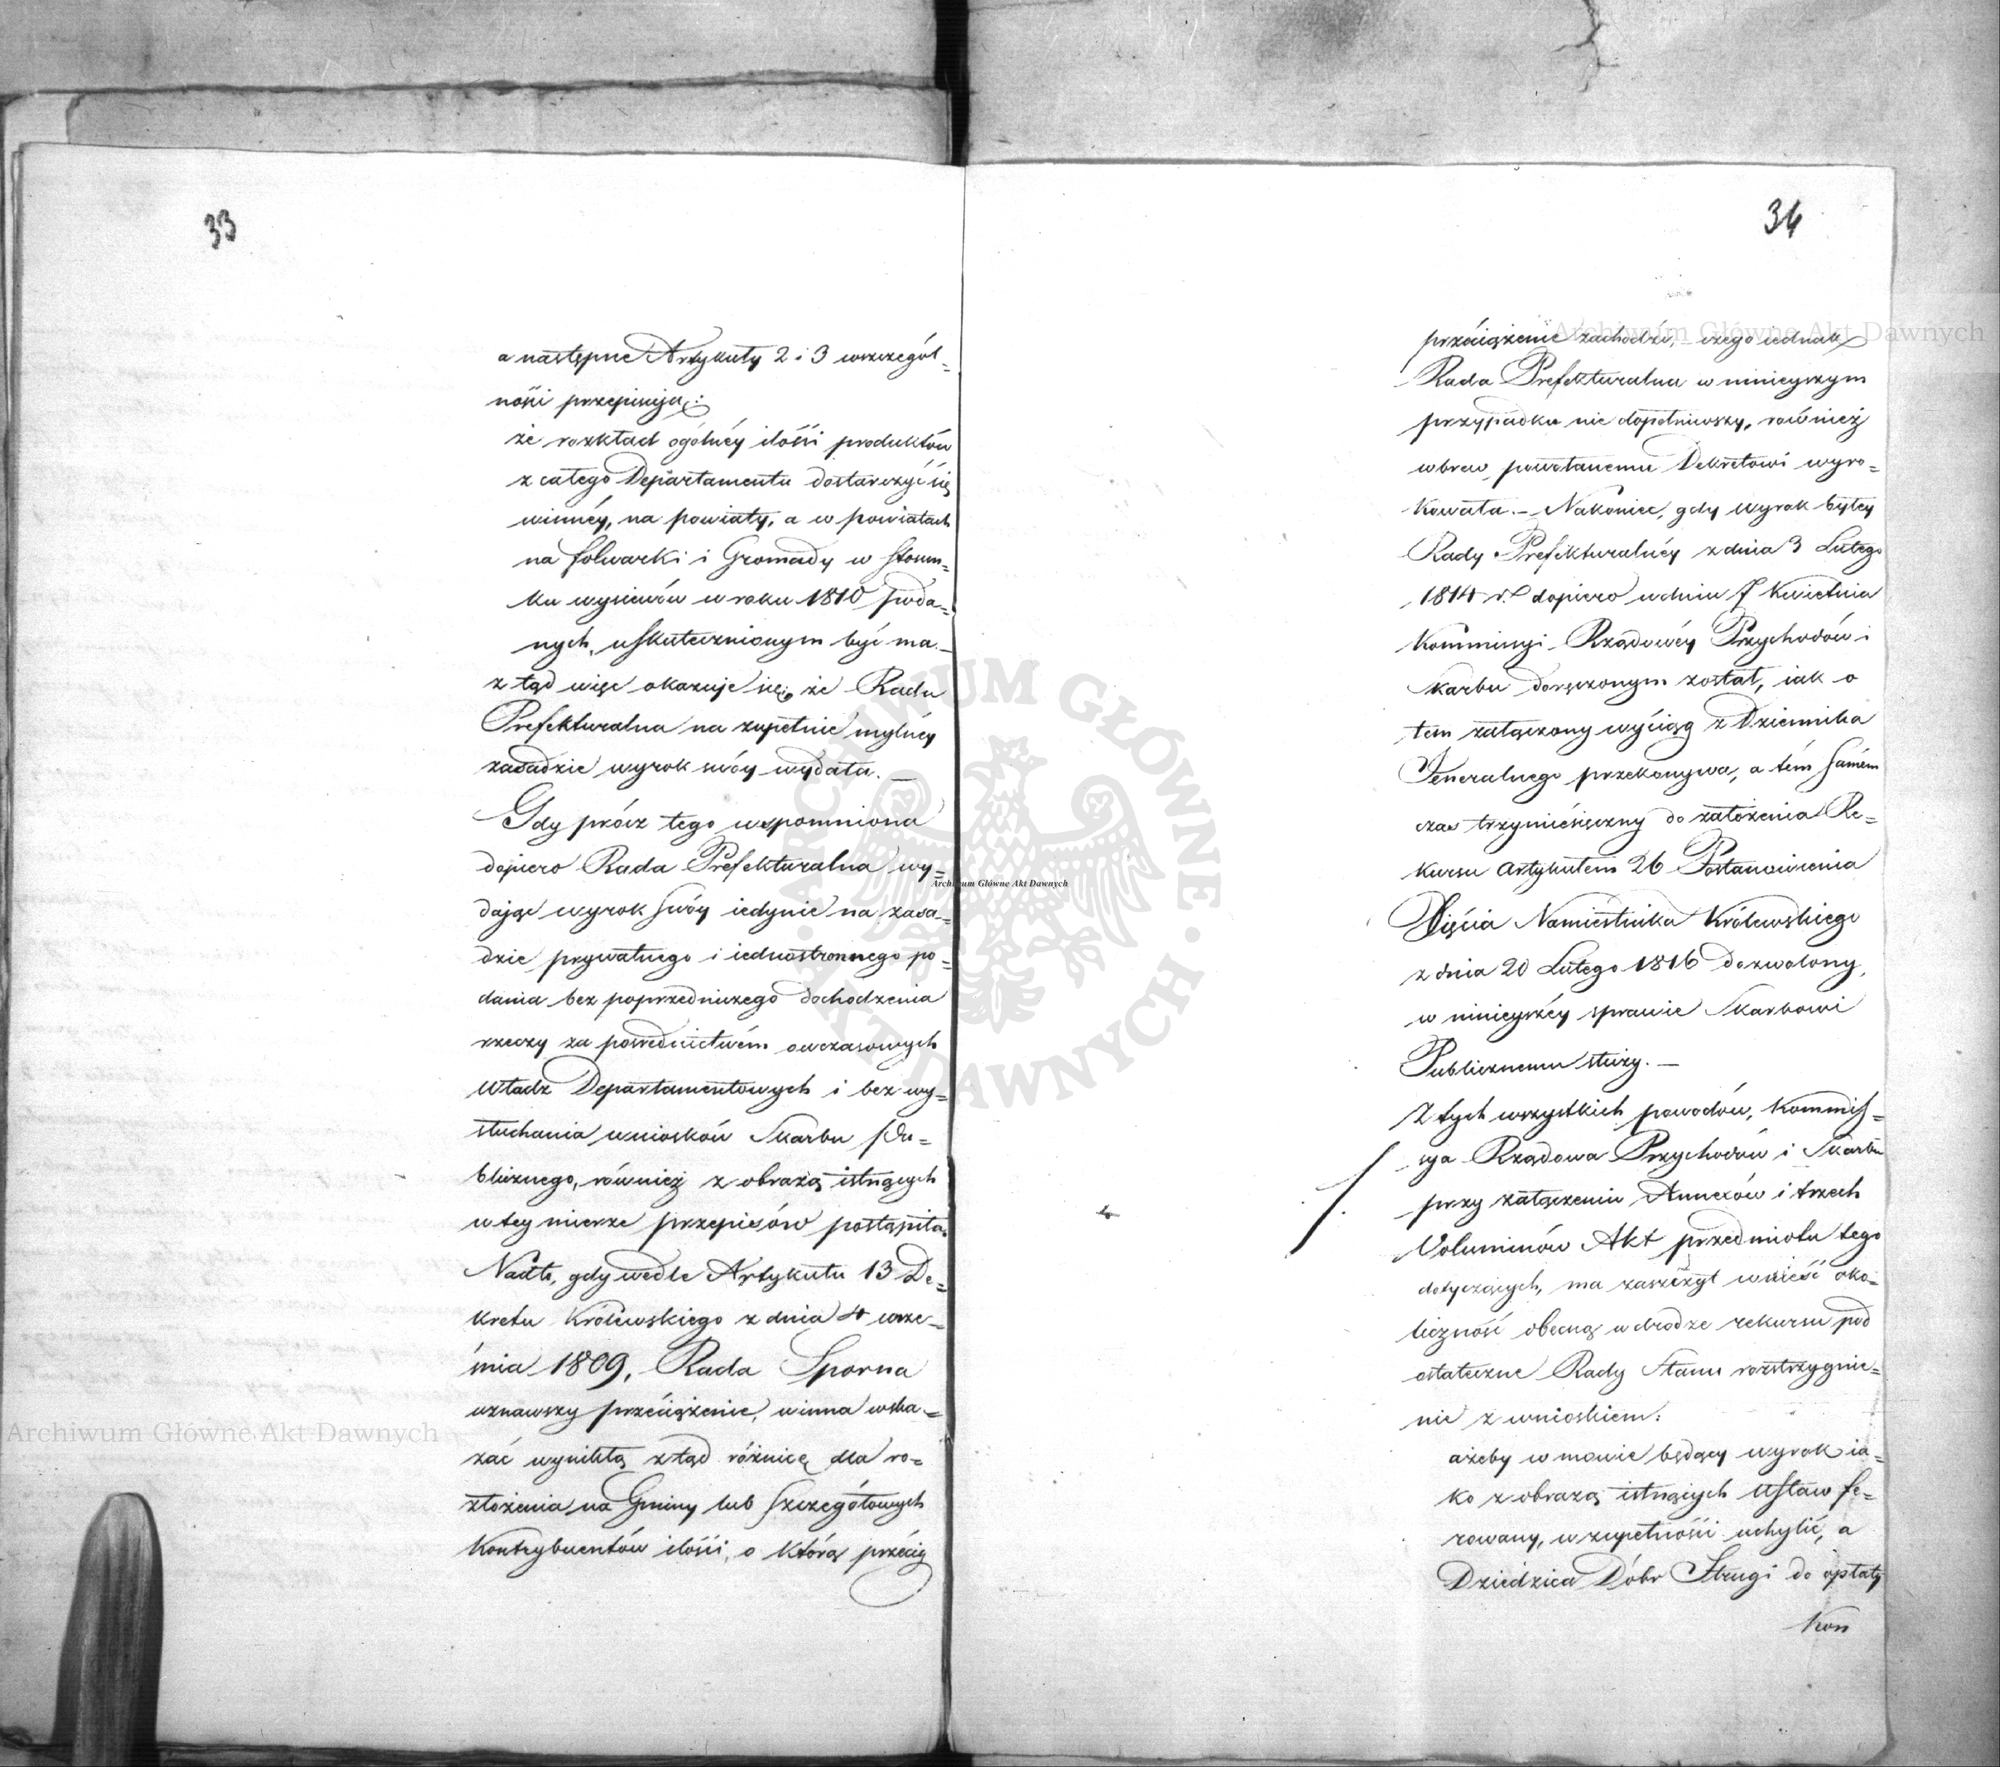 33
a następne Artykuły 2 i 3 wszczegól-
ności przepisują:
że rozkład ogólnéy ilości produktów
z całego Departamentu dostarczyć się
winnéy, na powiaty, a w powiatach
na folwarki i Gromady w stosun-
ku wysiewów w roku 1810 poda-
nych, uskutecznionym być ma. —
z tąd więc okazuje się, że Rada
Prefekturalna na zupełnie mylnéy
zasadzie wyrok swóy wydała. —
Gdy prócz tego wspomniona
dopiero Rada Prefekturalna wy=
dając wyrok swóy iedynie na zasa-
dzie prywatnego i iednostronnego po=
dania bez poprzedniczego dochodzenia
rzeczy za pośrednictwém owczasowych
Władz Departamentowych i bez wy=
słuchania wniosków Skarbu Pu=
blicznego, również z obrazą istnących
w tey mierze przepisów postąpiła.
Nadto, gdy wedle Artykułu 13 De=
kretu Królewskiego z dnia 4 wrze-
śnia 1809, Rada Sporna
uznawszy przeciążenie, winna wska=
zać wynikłą ztąd różnicę dla ro=
złożenia na Gminy lub szczegółowych
Kontrybuentów ilości, o którą przecią
34
przeciążenie zachodzi, — czego iednak
Rada Prefekturalna w ninieyszym
przypadku nie dopełniwszy, również
wbrew powołanemu Dekretowi wyro=
kowała. — Nakoniec, gdy wyrok byłey
Rady Prefekturalnéy z dnia 3 Lutego
1814 r. dopiero w dniu 7 Kwietnia
Kommissyi Rządowéy Przychodów i
Skarbu doręczonym został, iak o
tem załączony wyciąg z Dziennika
Jeneralnego przekonywa, a tém samém
czas trzymiesięczny do założenia Re=
kursu Artykułem 26 Postanowienia
Xięcia Namiestnika Królewskiego
z dnia 20 Lutego 1816 dozwolony,
w ninieyszéy sprawie Skarbowi
Publicznemu służy. —
Z tych wszystkich powodów, Kommis=
sya Rządowa Przychodów i Skarbu
przy załączeniu Annexów i trzech
Voluminów Akt przedmiotu tego
dotyczących, ma zaszczyt wnieść oko=
liczność obecną w drodze rekursu pod
ostateczne Rady Stanu rozstrzygnie=
nie z wnioskiem:
ażeby w mowie będący wyrok ia=
ko z obrazą istnących Ustaw fe=
rowany, w zupełności uchylić, a
Dziedzica Dóbr Strugi do opłaty
Kon
Archiwum Główne Akt Dawnych
Archiwum Główne Akt Dawnych
Archiwum Główne Akt Dawnych
ARCHIWUM GŁÓWNE AKT DAWNYCH